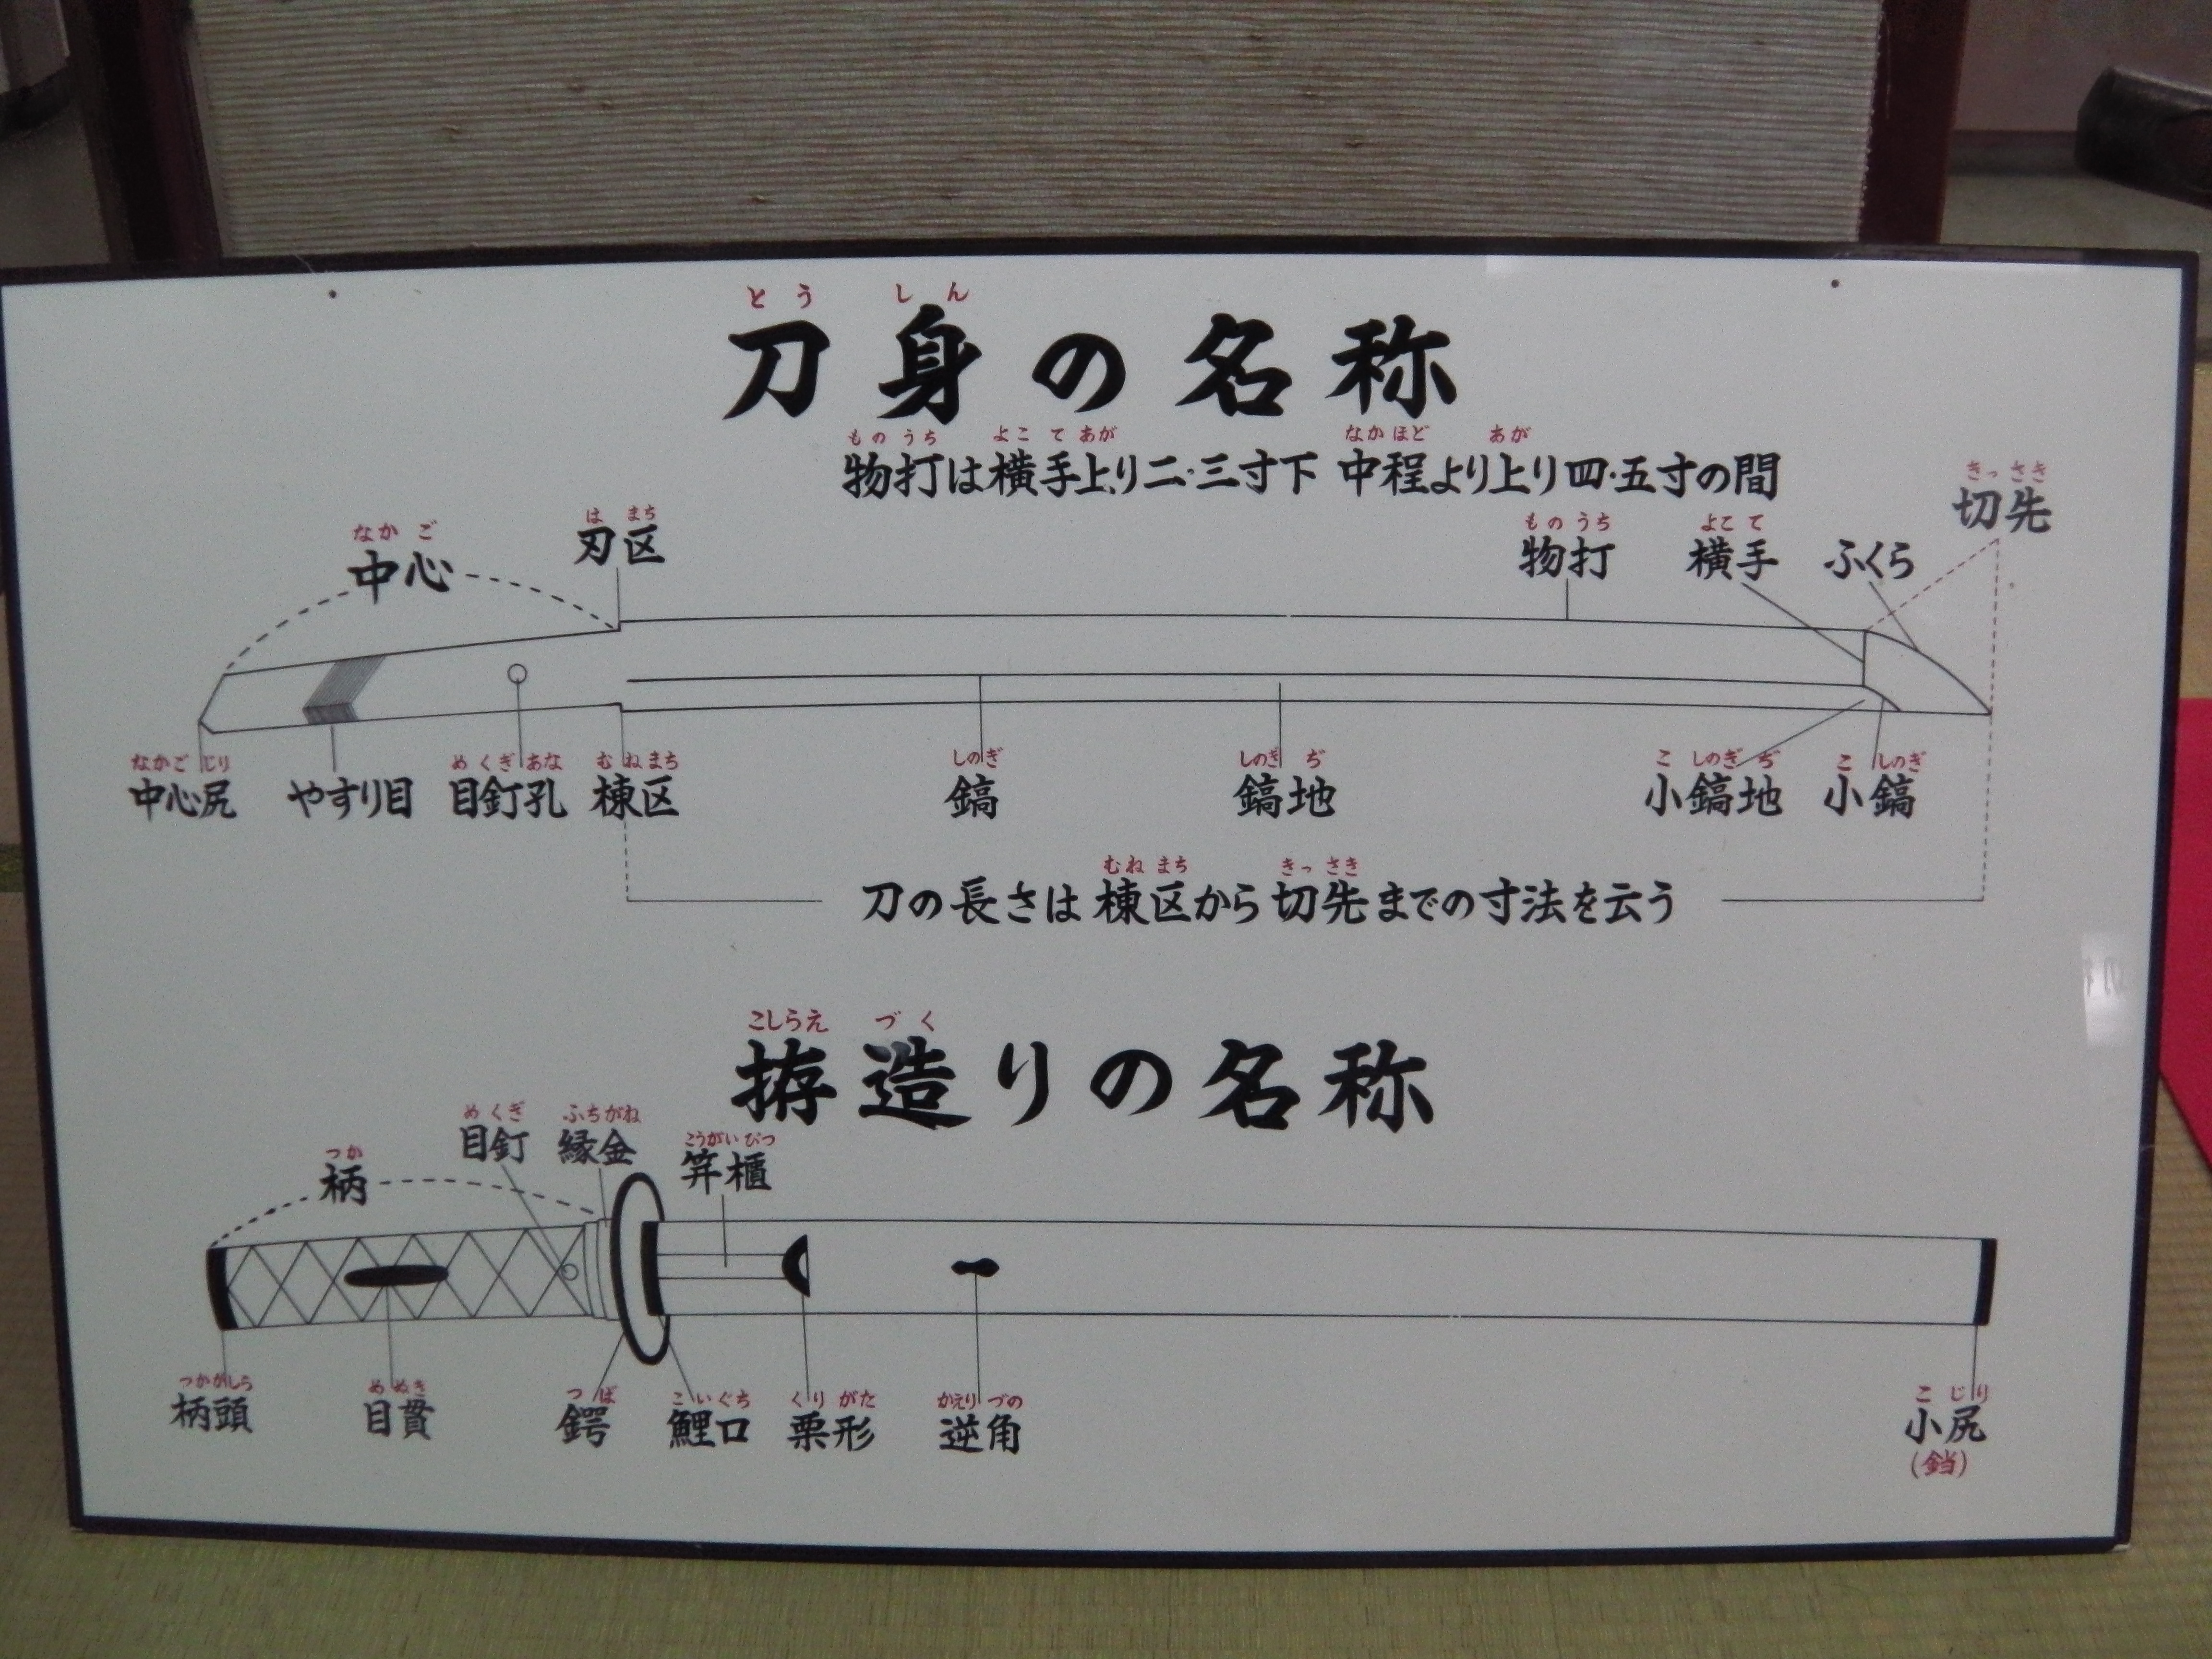 とう しん
刀身の名称
ものうち よこて あが なかほど あが
物打は横手上り二・三寸下 中程より上り四・五寸の間
きっさき
切先
なかご
中心
は まち
刃区
ものうち
物打
よこて
横手
ふくら
なかごじり
中心尻
やすり目
めくぎあな
目釘孔
むねまち
棟区
しのぎ
鎬
しのぎぢ
鎬地
こしのぎぢ
小鎬地
こしのぎ
小鎬
むねまち きっさき
刀の長さは棟区から切先までの寸法を云う
こしらえ づく
拵造りの名称
つか
柄
めくぎ
目釘
ふちがね
縁金
こうがいびつ
笄櫃
つかがしら
柄頭
めぬき
目貫
つば
鍔
こいぐち
鯉口
くりがた
栗形
かえりづの
逆角
こじり
小尻
(鐺)